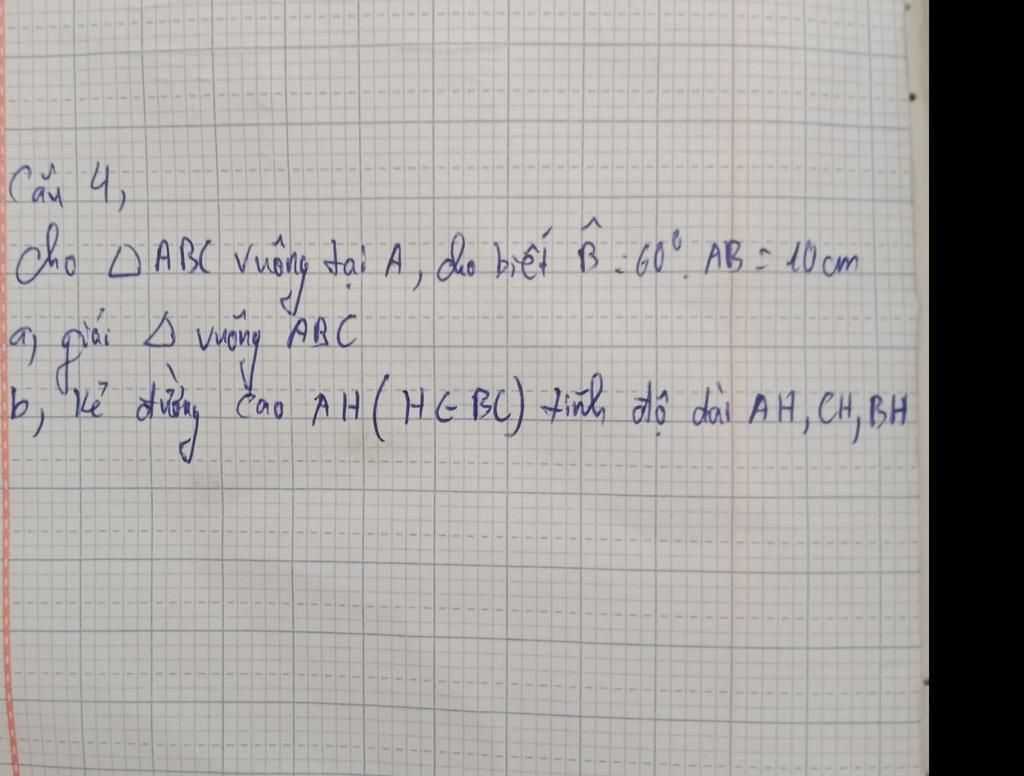 Câu 4,
Cho △ ABC vuông tại A, cho biết B̂ = 60⁰. AB = 10 cm
a, giải △ vuông ABC
b, kẻ đường cao AH ( H ∈ BC) tính độ dài AH, CH, BH